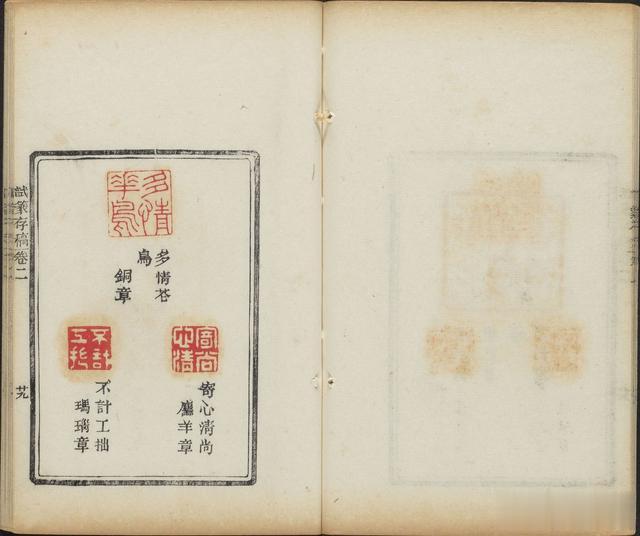 多情
華鳥
多情芲
鳥
銅章
寄心清尚
寄心清尚
麢羊章
不計
工拙
不計工拙
瑪瑙章
試篆存稿卷二
廿九